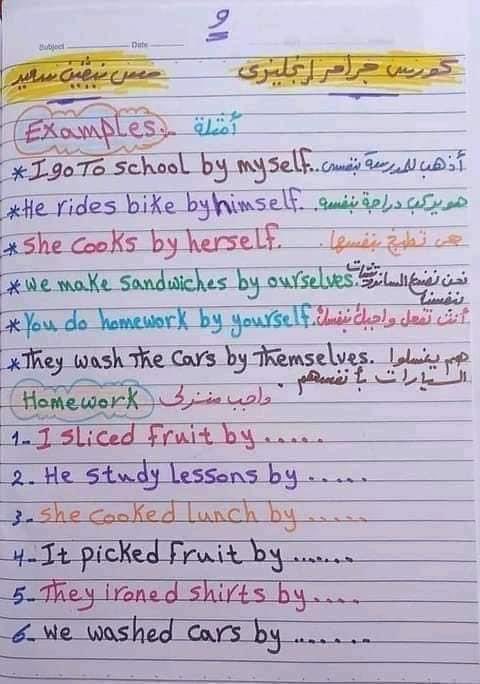 و
Subject Date
كورس جرامر إنجليزى مس نيفين سعيد
Examples. أمثلة
* I go To school by myself. أذهب للمدرسة بنفسى
* He rides bike by himself. هو يركب دراجة بنفسه
* She cooks by herself. هى تطبخ بنفسها
* we make sandwiches by ourselves. نحن نصنع الساندوتشات
بنفسنا
* You do homework by yourself. أنت تفعل واجبك بنفسك
* They wash The Cars by Themselves. هم يغسلوا
السيارات بأنفسهم
Homework واجب منزلى
1- I sliced Fruit by .....
2- He study lessons by ......
3- she cooked lunch by .....
4- It picked Fruit by .......
5- They ironed shirts by ....
6- we washed cars by .......